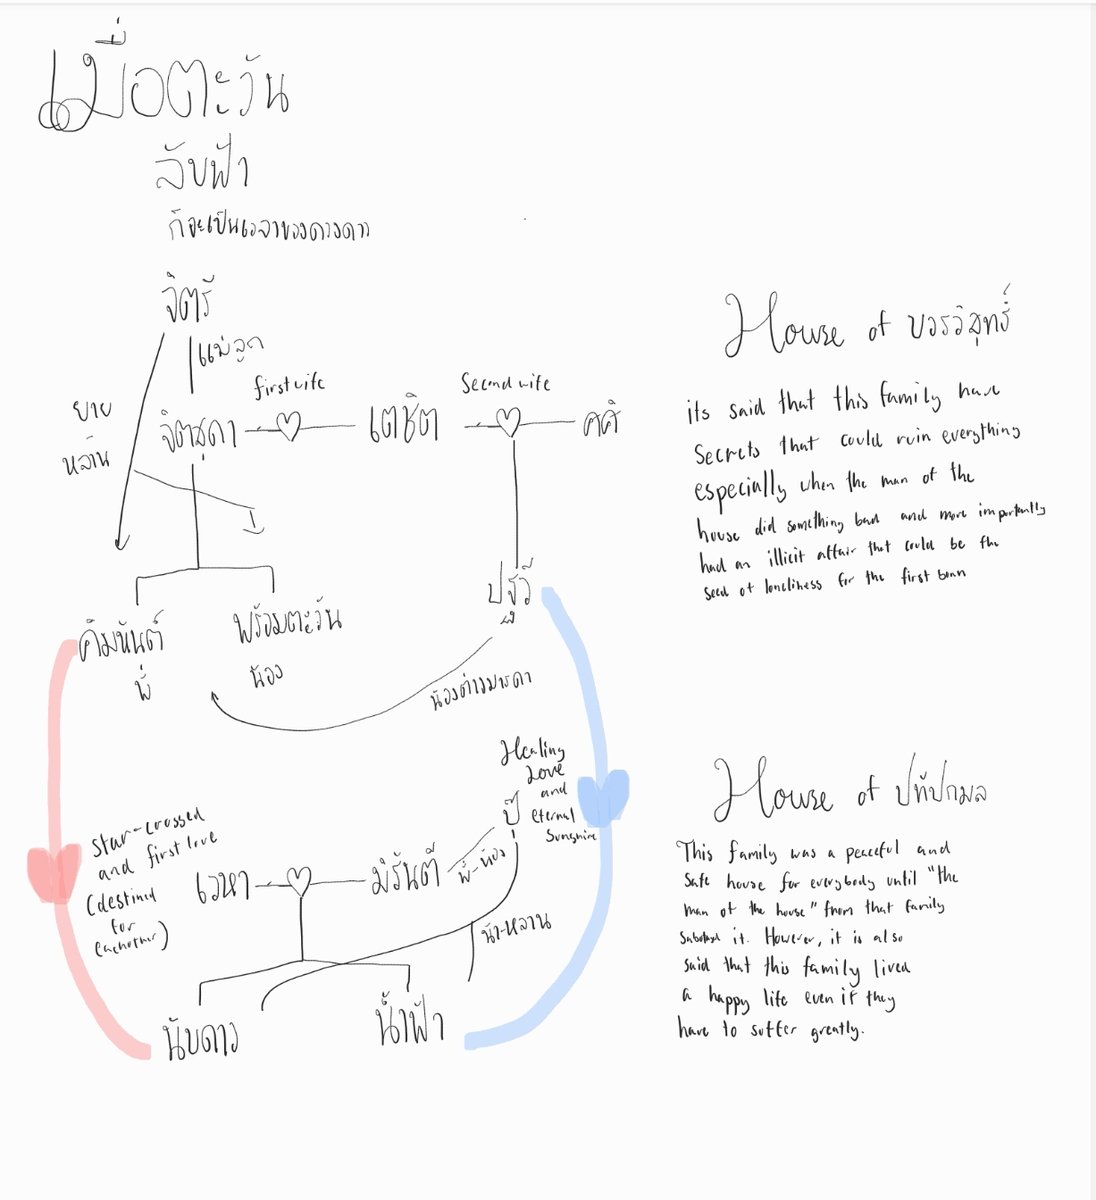 เมื่อตะวัน
ลับฟ้า
ก็จะเป็นเวลาของดวงดาว
จิตรี
แม่ลูก
ยาย
หลาน
first wife
Second wife
จิตสุดา
เตชิต
ศศิ
คิมหันต์
พี่
พร้อมตะวัน
น้อง
ปฐวี
น้องต่างมารดา
House of บวรวิสุทธิ์
its said that this family have
secrets that could ruin everything
especially when the man of the
house did something bad and more importantly
had an illicit affair that could be the
seed of loneliness for the first born
star-crossed
and first love
(destined
for
eachother)
Healing
Love
and
eternal
Sunshine
ปี
เวหา
มิรันตี
พี่-น้อง
น้า-หลาน
นับดาว
น้ำฟ้า
House of ปทีปกมล
This family was a peaceful and
safe house for everybody until "the
man of the house" from that family
it. However, it is also
said that this family lived
a happy life even if they
have to suffer greatly.